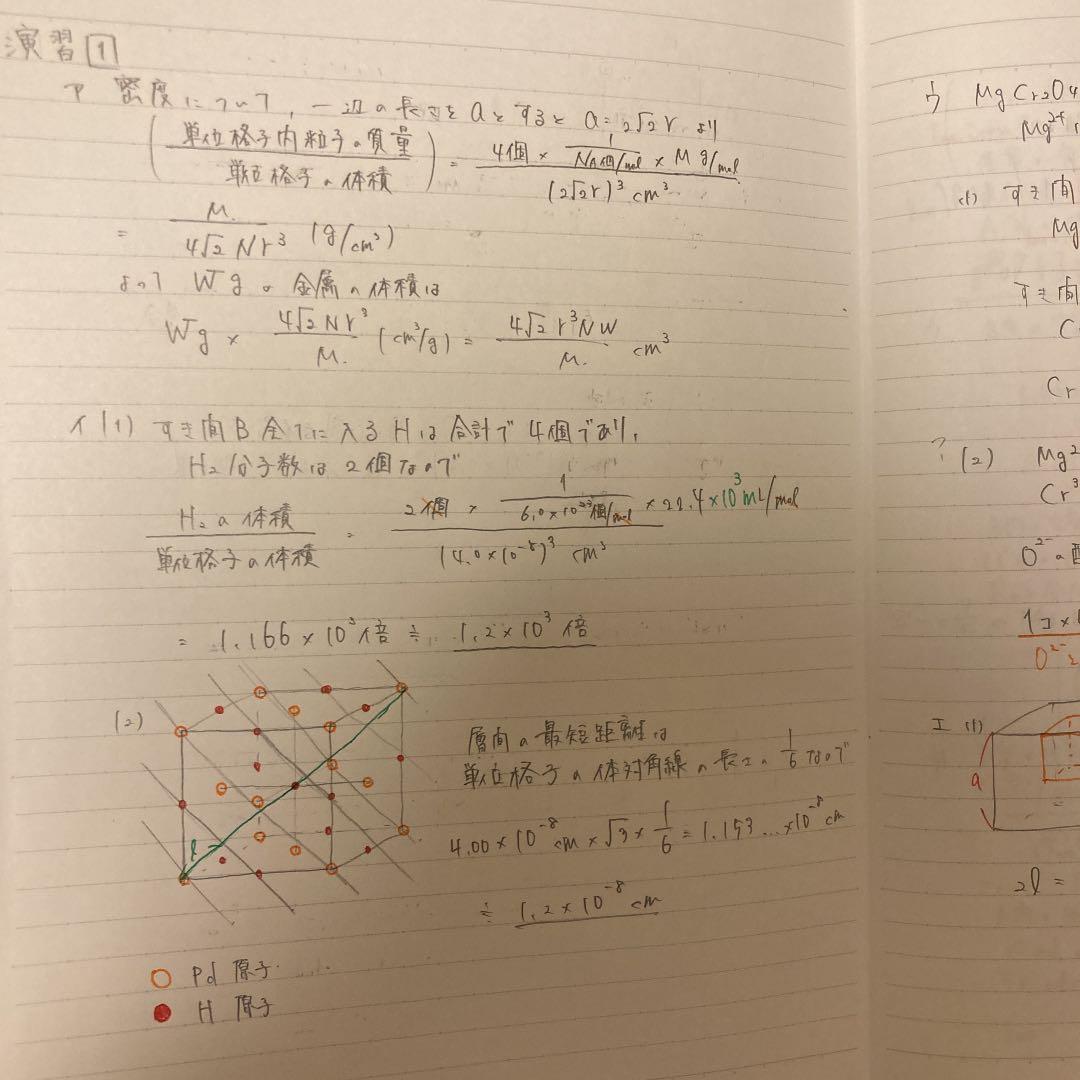 演習 1
ア 密度について, 一辺の長さを a とすると a=2√2r より
(単位格子内粒子の質量/単位格子の体積) = 4個 × 1/(NA個/mol) × M g/mol / (2√2r)³ cm³
= M/(4√2 Nr³) (g/cm³)
よって Wg の金属の体積は
Wg × 4√2Nr³/M (cm³/g) = 4√2r³NW/M cm³
イ (1) すき間B全てに入るHは合計で4個であり,
H₂分子数は2個なので
H₂の体積/単位格子の体積 = 2個 × 1/(6.0×10²³個/mol) × 22.4×10³mL/mol / (4.0×10⁻⁸)³ cm³
= 1.166×10³倍 ≒ 1.2×10³倍
(2)
l
層間の最短距離は
単位格子の体対角線の長さの 1/6 なので
4.00×10⁻⁸cm×√3×1/6 = 1.153...×10⁻⁸cm
≒ 1.2×10⁻⁸cm
○ Pd 原子
● H 原子
ウ MgCr₂O₄
Mg²⁺
(1) すき間
Mg
すき間
C
Cr
? (2) Mg²
Cr³
O²⁻の配
1コ×
O²⁻
エ (1)
a
2l =